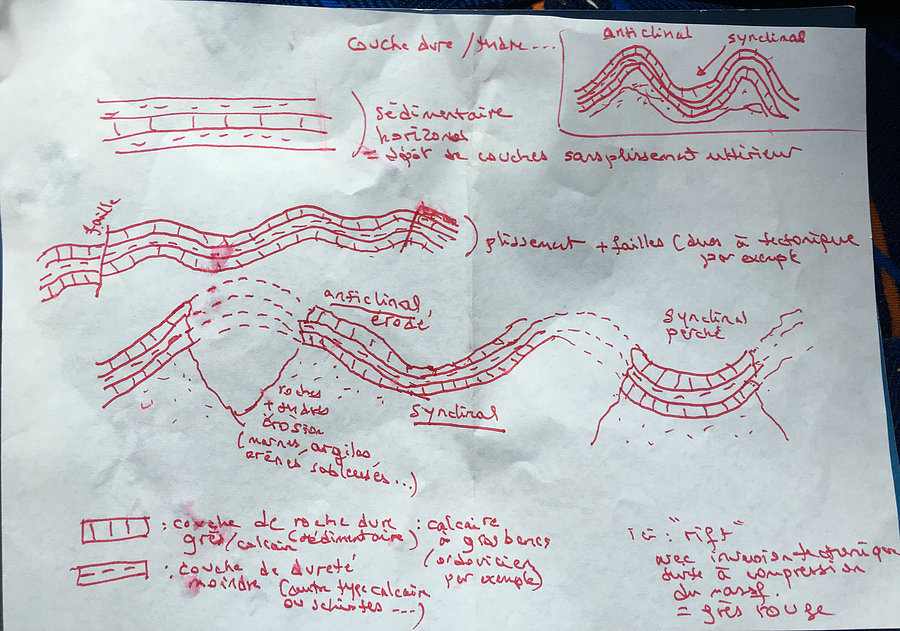 couche dure / tendre ...
anticlinal
synclinal
sédimentaire
horizontal
= dépôt de couches sans plissement ultérieur
faille
plissement + failles (dues à tectonique
par exemple
anticlinal
érodé
synclinal
perché
roches
+ tendres
érosion
(marnes, argiles
arènes, sableuses ...)
synclinal
: couche de roche dure : calcaire
grès/calcaire (sédimentaire) à gros bancs
(ordovicien
par exemple)
: couche de dureté
moindre (autre type calcaire
ou schistes ---)
ici : "rift"
avec inversion tectonique
due à compression
du massif.
= grès rouge